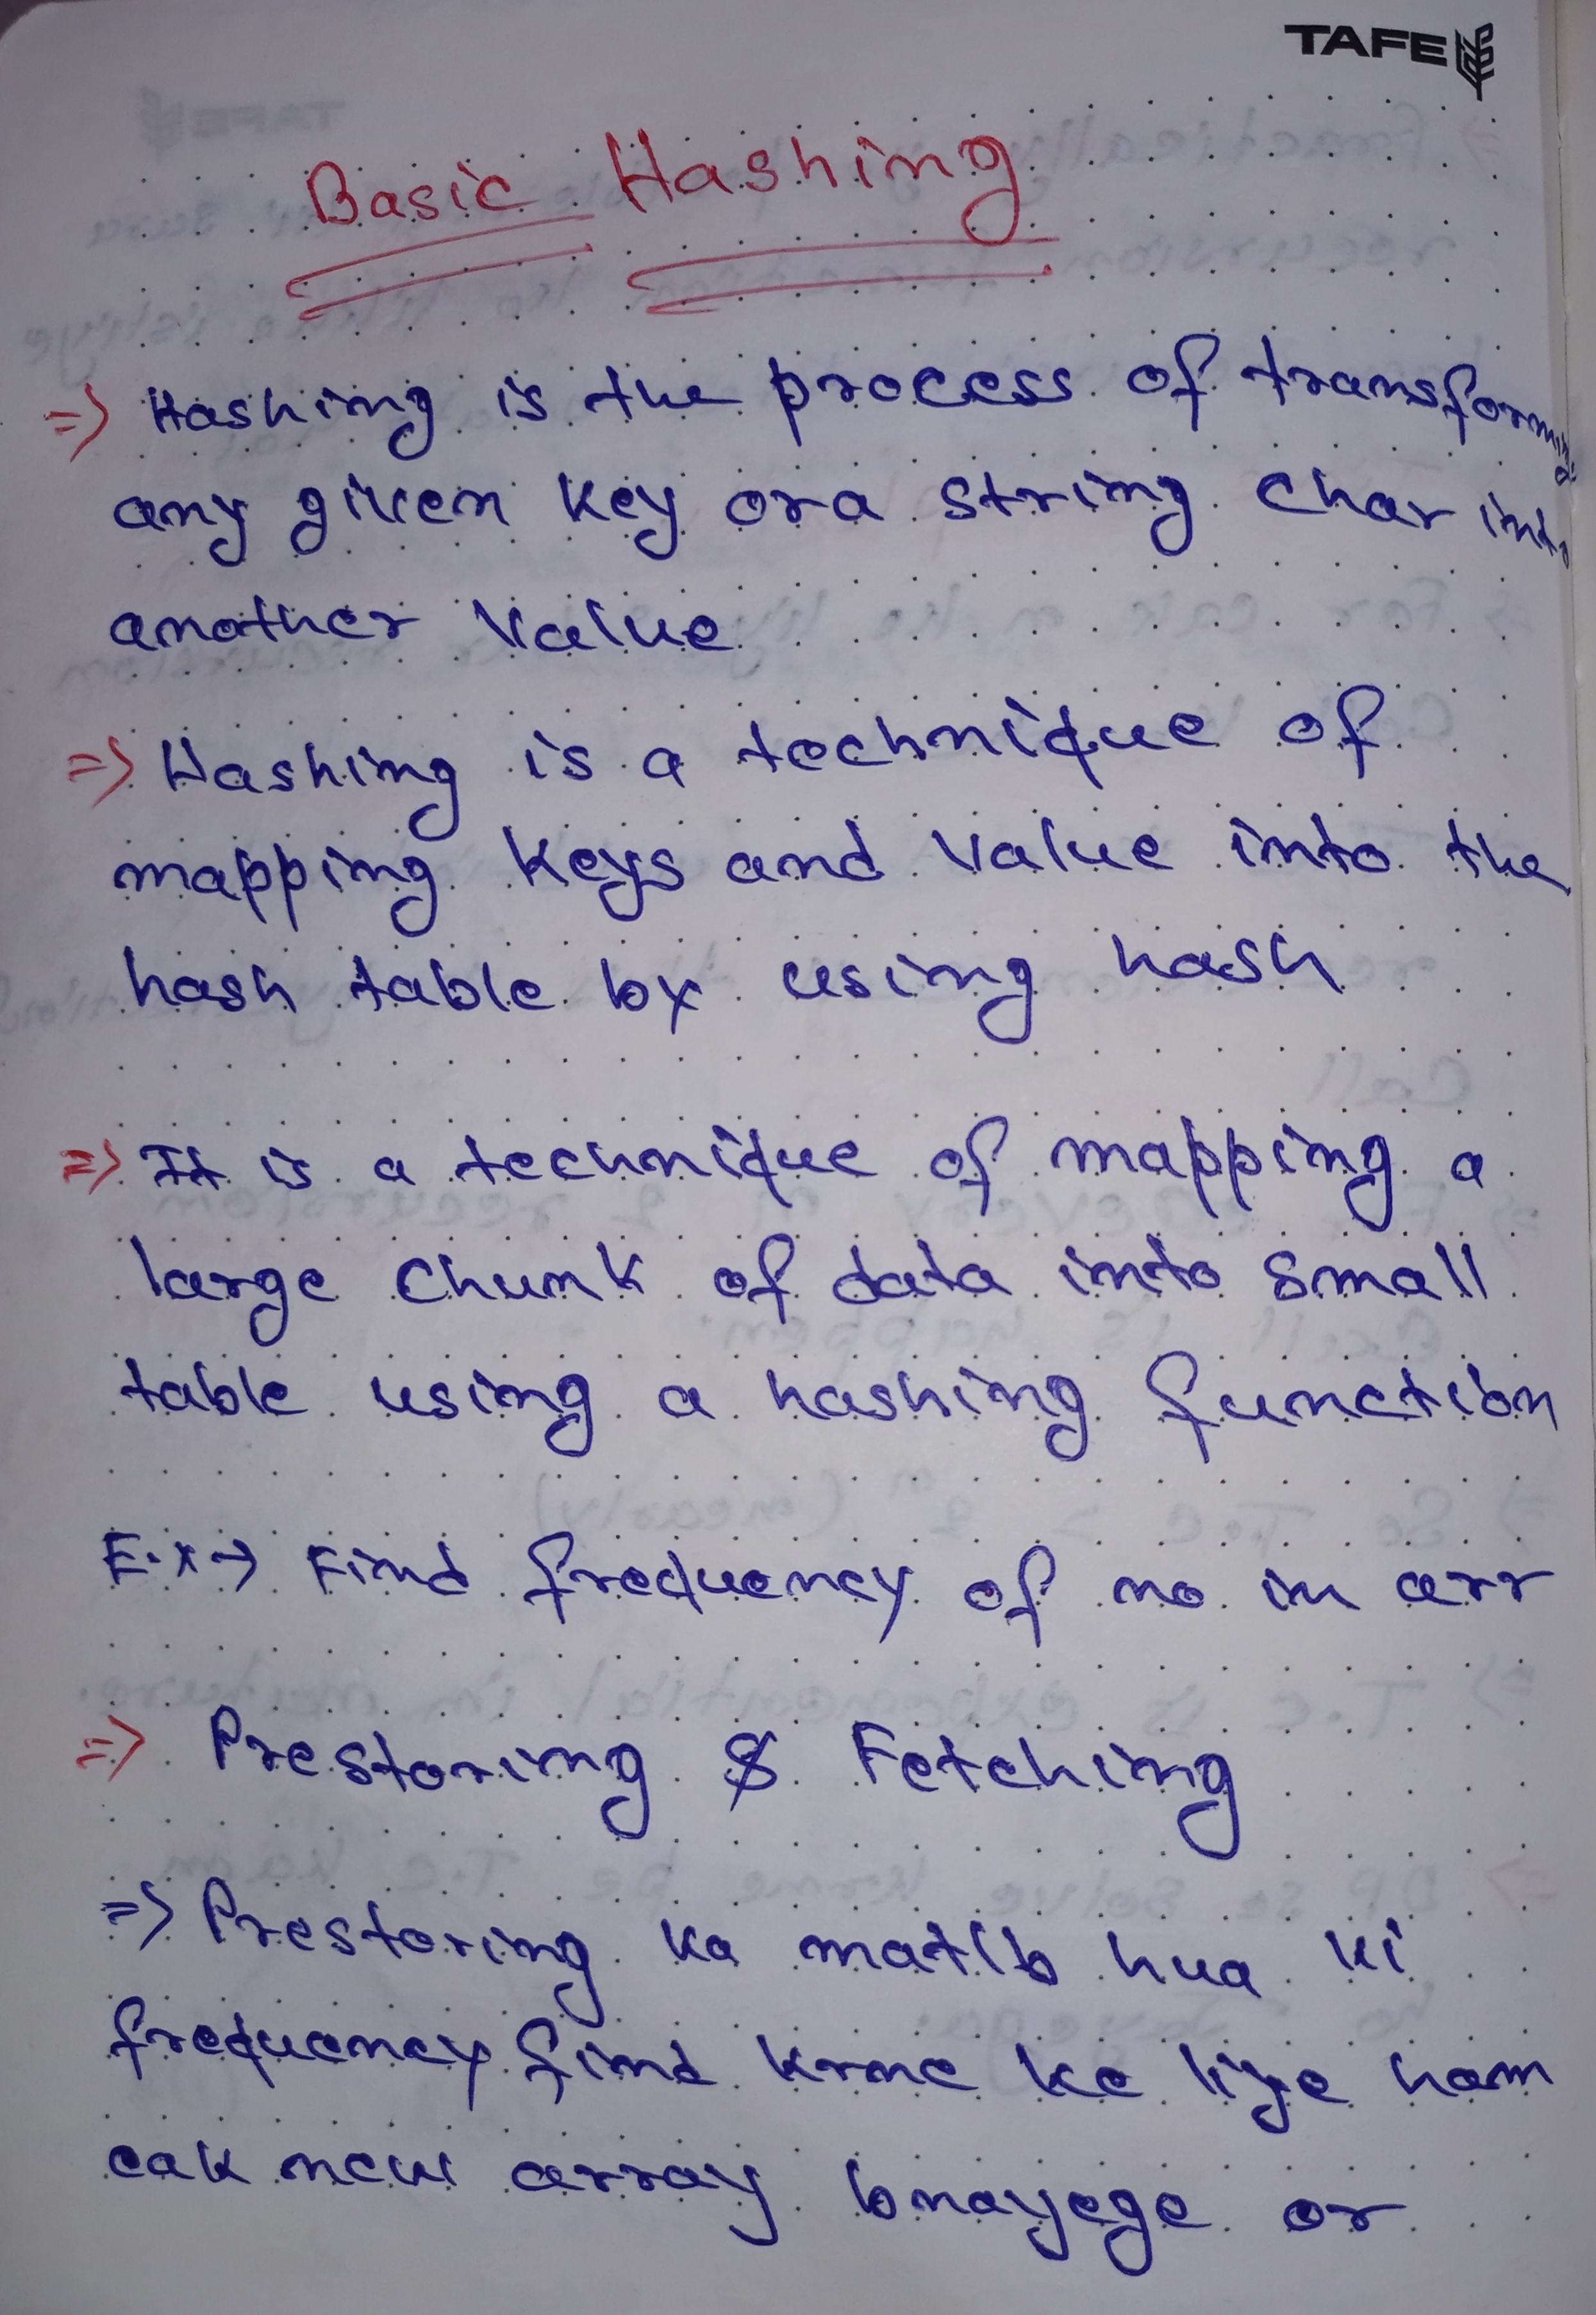 TAFE
Basic Hashing
=> Hashing is the process of transforming
any given key or a string char into
another value
=> Hashing is a technique of
mapping keys and value into the
hash table by using hash
=> It is a technique of mapping a
large chunk of data into small
table using a hashing function
E.x → Find frequency of no in arr
=> Prestoring & Fetching
=> Prestoring ka matlb hua ki
frequency find krne ke liye ham
eak new array bnayege or